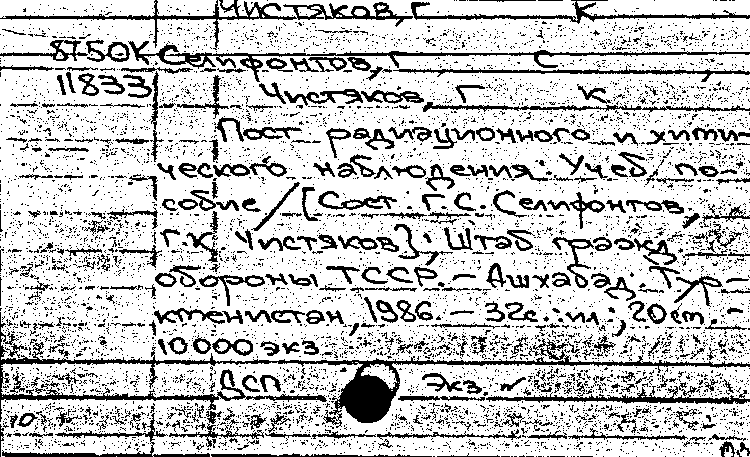 Чистяков, Г К
8750К Селифонтов, Г С
11833 Чистяков, Г К
Пост радиационного и хими-
ческого наблюдения: Учеб. по-
собие / [Сост.: Г.С. Селифонтов,
Г.К. Чистяков]; Штаб гражд.
обороны ТССР. - Ашхабад: Тур-
кменистан, 1986. - 32с.: ил.; 20 см. -
10000 экз.
ДСП. Экз. №
10